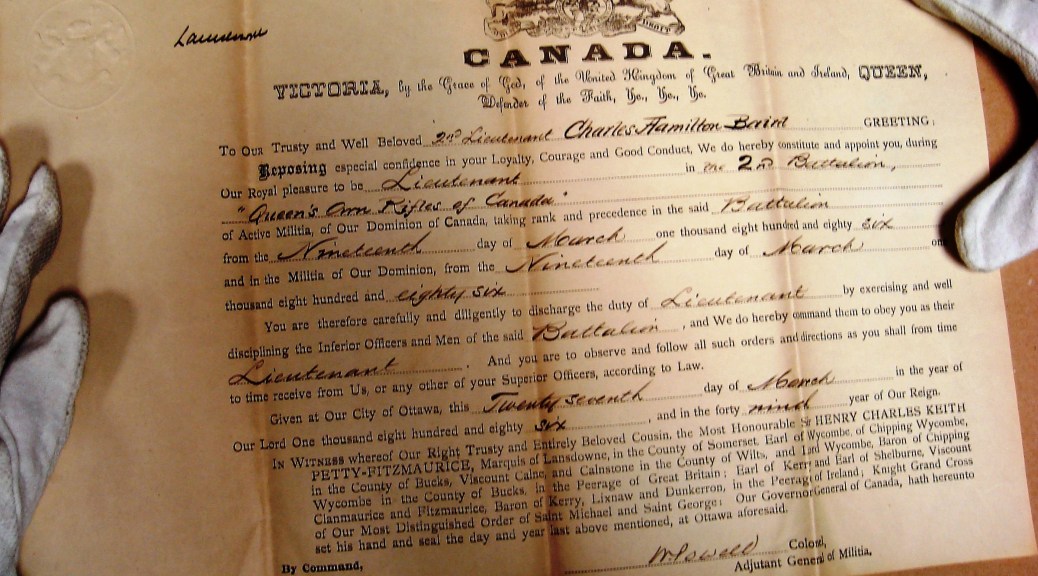 Lansdowne
CANADA.
VICTORIA, by the Grace of God, of the United Kingdom of Great Britain and Ireland, QUEEN,
Defender of the Faith, &c., &c., &c.
To Our Trusty and Well Beloved 2nd Lieutenant Charles Hamilton Baird GREETING:
Reposing especial confidence in your Loyalty, Courage and Good Conduct, We do hereby constitute and appoint you, during
Our Royal pleasure to be Lieutenant in the 2nd Battalion,
"Queen's Own Rifles of Canada"
of Active Militia, of Our Dominion of Canada, taking rank and precedence in the said Battalion
from the Nineteenth day of March one thousand eight hundred and eighty six
and in the Militia of Our Dominion, from the Nineteenth day of March one
thousand eight hundred and eighty six
You are therefore carefully and diligently to discharge the duty of Lieutenant by exercising and well
disciplining the Inferior Officers and Men of the said Battalion, and We do hereby command them to obey you as their
Lieutenant. And you are to observe and follow all such orders and directions as you shall from time
to time receive from Us, or any other of your Superior Officers, according to Law.
Given at Our City of Ottawa, this Twenty seventh day of March in the year of
Our Lord One thousand eight hundred and eighty six, and in the forty nind year of Our Reign.
IN WITNESS whereof Our Right Trusty and Entirely Beloved Cousin, the Most Honourable Sir HENRY CHARLES KEITH
PETTY-FITZMAURICE, Marquis of Lansdowne, in the County of Somerset, Earl of Wycombe, of Chipping Wycombe,
in the County of Bucks, Viscount Calne, and Calnstone in the County of Wilts, and Lord Wycombe, Baron of Chipping
Wycombe in the County of Bucks, in the Peerage of Great Britain: Earl of Kerry and Earl of Shelburne, Viscount
Clanmaurice and Fitzmaurice, Baron of Kerry, Lixnaw and Dunkerron, in the Peerage of Ireland; Knight Grand Cross
of Our Most Distinguished Order of Saint Michael and Saint George: Our Governor General of Canada, hath hereunto
set his hand and seal the day and year last above mentioned, at Ottawa aforesaid.
By Command,
W Powell Colonel,
Adjutant General of Militia,